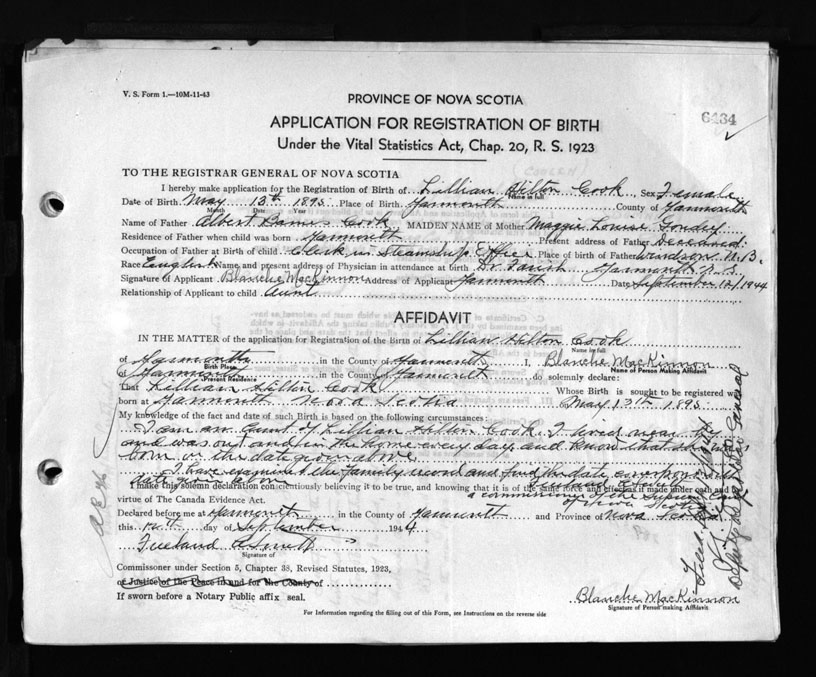 V. S. Form 1.—10M-11-43
PROVINCE OF NOVA SCOTIA
6434
APPLICATION FOR REGISTRATION OF BIRTH
Under the Vital Statistics Act, Chap. 20, R. S. 1923
TO THE REGISTRAR GENERAL OF NOVA SCOTIA
I hereby make application for the Registration of Birth of Lillian Hilton Cook Sex Female
Name in full
Date of Birth May 13th 1895 Place of Birth Yarmouth County of Yarmouth
Month Date Year
Name of Father Albert Cook MAIDEN NAME of Mother Maggie Louise Goudey
Residence of Father when child was born Yarmouth Present address of Father Deceased
Occupation of Father at Birth of child Clerk in Steamship Office Place of birth of Father Windsor N.B.
Race English Name and present address of Physician in attendance at birth Dr. Farish Yarmouth N.S.
Signature of Applicant Blanche MacKinnon Address of Applicant Yarmouth Date September 12/1944
Relationship of Applicant to child Aunt
AFFIDAVIT
IN THE MATTER of the application for Registration of the Birth of Lillian Hilton Cook
Name in full
of Yarmouth in the County of Yarmouth I, Blanche MacKinnon
Birth Place Name of Person Making Affidavit
of Yarmouth in the County of Yarmouth do solemnly declare:
Present Residence
That Lillian Hilton Cook Whose Birth is sought to be registered was
born at Yarmouth Nova Scotia May 13th 1895
My knowledge of the fact and date of such Birth is based on the following circumstances:
I am an Aunt of Lillian Hilton Cook. I lived near by
and was out and in the home every day and know that she was
born on the date given above
I have examined the family record and find the date corresponds
date given above
I make this solemn declaration conscientiously believing it to be true, and knowing that it is of the same force and effect as if made under oath and by
virtue of The Canada Evidence Act.
a commissioner of the Supreme
of Nova Scotia
Declared before me at Yarmouth in the County of Yarmouth and Province of Nova Scotia
this 12th day of September 1944
Signature of
Commissioner under Section 5, Chapter 38, Revised Statutes, 1923,
or Justice of the Peace in and for the County of
If sworn before a Notary Public affix seal.
Blanche MacKinnon
Signature of Person making Affidavit
For Information regarding the filling out of this Form, see Instructions on the reverse side
Deputy Registrar General